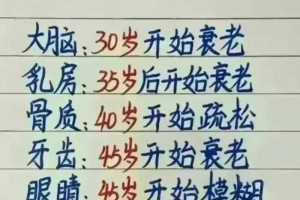 大脑:30岁开始衰老
乳房:35岁后开始衰老
骨质:40岁开始疏松
牙齿:45岁开始衰老
眼睛:45岁开始模糊